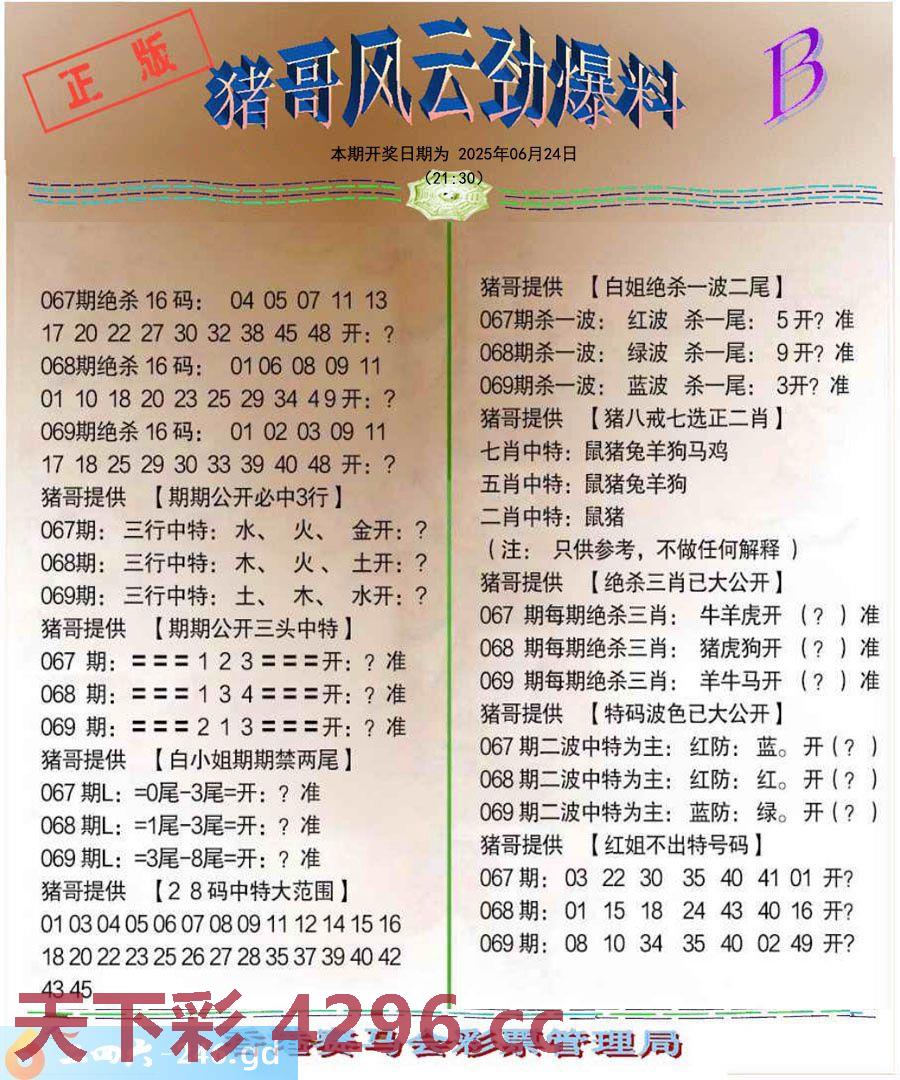 正版
猪哥风云劲爆料
B
本期开奖日期为 2025年06月24日
(21:30)
067期绝杀16码： 04 05 07 11 13
17 20 22 27 30 32 38 45 48 开：?
068期绝杀16码： 01 06 08 09 11
01 10 18 20 23 25 29 34 49开：?
069期绝杀16码： 01 02 03 09 11
17 18 25 29 30 33 39 40 48 开：?
猪哥提供 【期期公开必中3行】
067期：三行中特：水、 火、 金开：?
068期：三行中特：木、 火、 土开：?
069期：三行中特：土、 木、 水开：?
猪哥提供 【期期公开三头中特】
067 期：===1 2 3===开：? 准
068 期：===1 3 4===开：? 准
069 期：===2 1 3===开：? 准
猪哥提供 【白小姐期期禁两尾】
067期L：=0尾-3尾=开：? 准
068期L：=1尾-3尾=开：? 准
069期L：=3尾-8尾=开：? 准
猪哥提供 【28码中特大范围】
01 03 04 05 06 07 08 09 11 12 14 15 16
18 20 22 23 25 26 27 28 35 37 39 40 42
43 45
猪哥提供 【白姐绝杀一波二尾】
067期杀一波： 红波 杀一尾： 5开? 准
068期杀一波： 绿波 杀一尾： 9开? 准
069期杀一波： 蓝波 杀一尾： 3开? 准
猪哥提供 【猪八戒七选正二肖】
七肖中特：鼠猪兔羊狗马鸡
五肖中特：鼠猪兔羊狗
二肖中特：鼠猪
（注： 只供参考，不做任何解释）
猪哥提供 【绝杀三肖已大公开】
067 期每期绝杀三肖： 牛羊虎开 （?）准
068 期每期绝杀三肖： 猪虎狗开 （?）准
069 期每期绝杀三肖： 羊牛马开 （?）准
猪哥提供 【特码波色已大公开】
067期二波中特为主：红防：蓝。开（?）
068期二波中特为主：红防：红。开（?）
069期二波中特为主：蓝防：绿。开（?）
猪哥提供 【红姐不出特号码】
067期： 03 22 30 35 40 41 01 开?
068期： 01 15 18 24 43 40 16 开?
069期： 08 10 34 35 40 02 49 开?
天下彩 4296.cc
马会彩票管理局